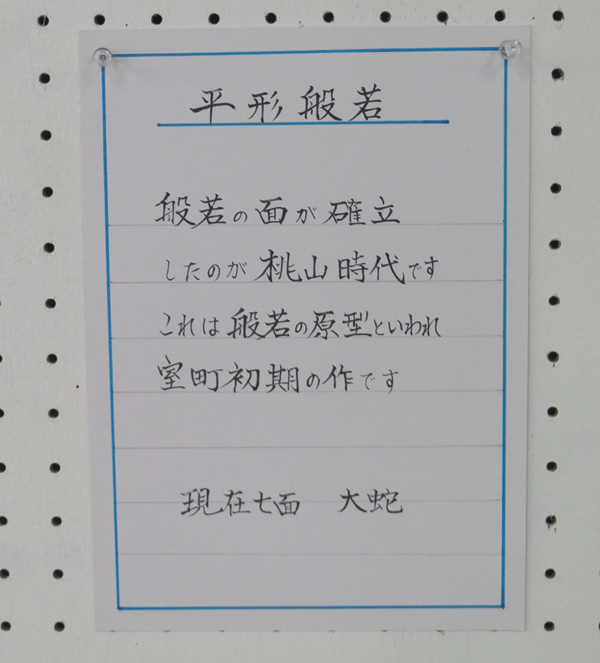 平形般若
般若の面が確立
したのが桃山時代です
これは般若の原型といわれ
室町初期の作です
現在七面 大蛇